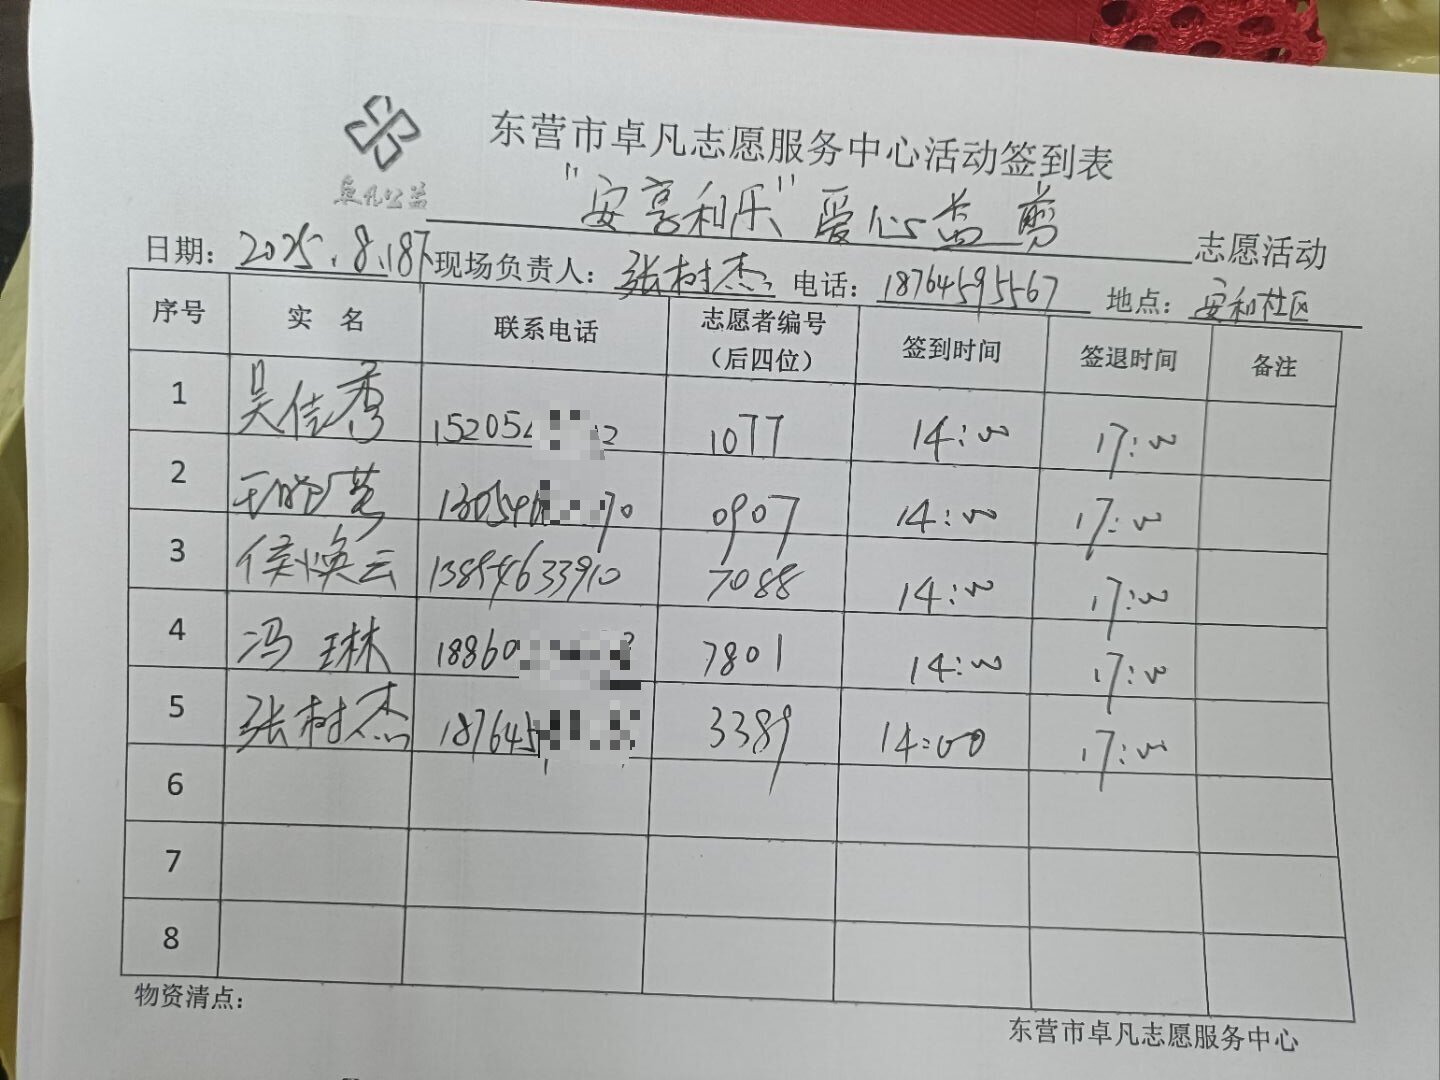 东营市卓凡志愿服务中心活动签到表
卓凡公益
"安享和乐"爱心益剪 志愿活动
日期：2025.8.18下 现场负责人：张树杰 电话：18764595567 地点：安和社区
序号 实 名 联系电话 志愿者编号（后四位） 签到时间 签退时间 备注
1 吴佳秀 15205 2 1077 14:00 17:00
2 王晓莲 130546 70 0907 14:00 17:00
3 侯焕云 13854633910 7088 14:00 17:00
4 冯琳 18860 7801 14:00 17:00
5 张树杰 187645 3389 14:00 17:00
6
7
8
物资清点：
东营市卓凡志愿服务中心